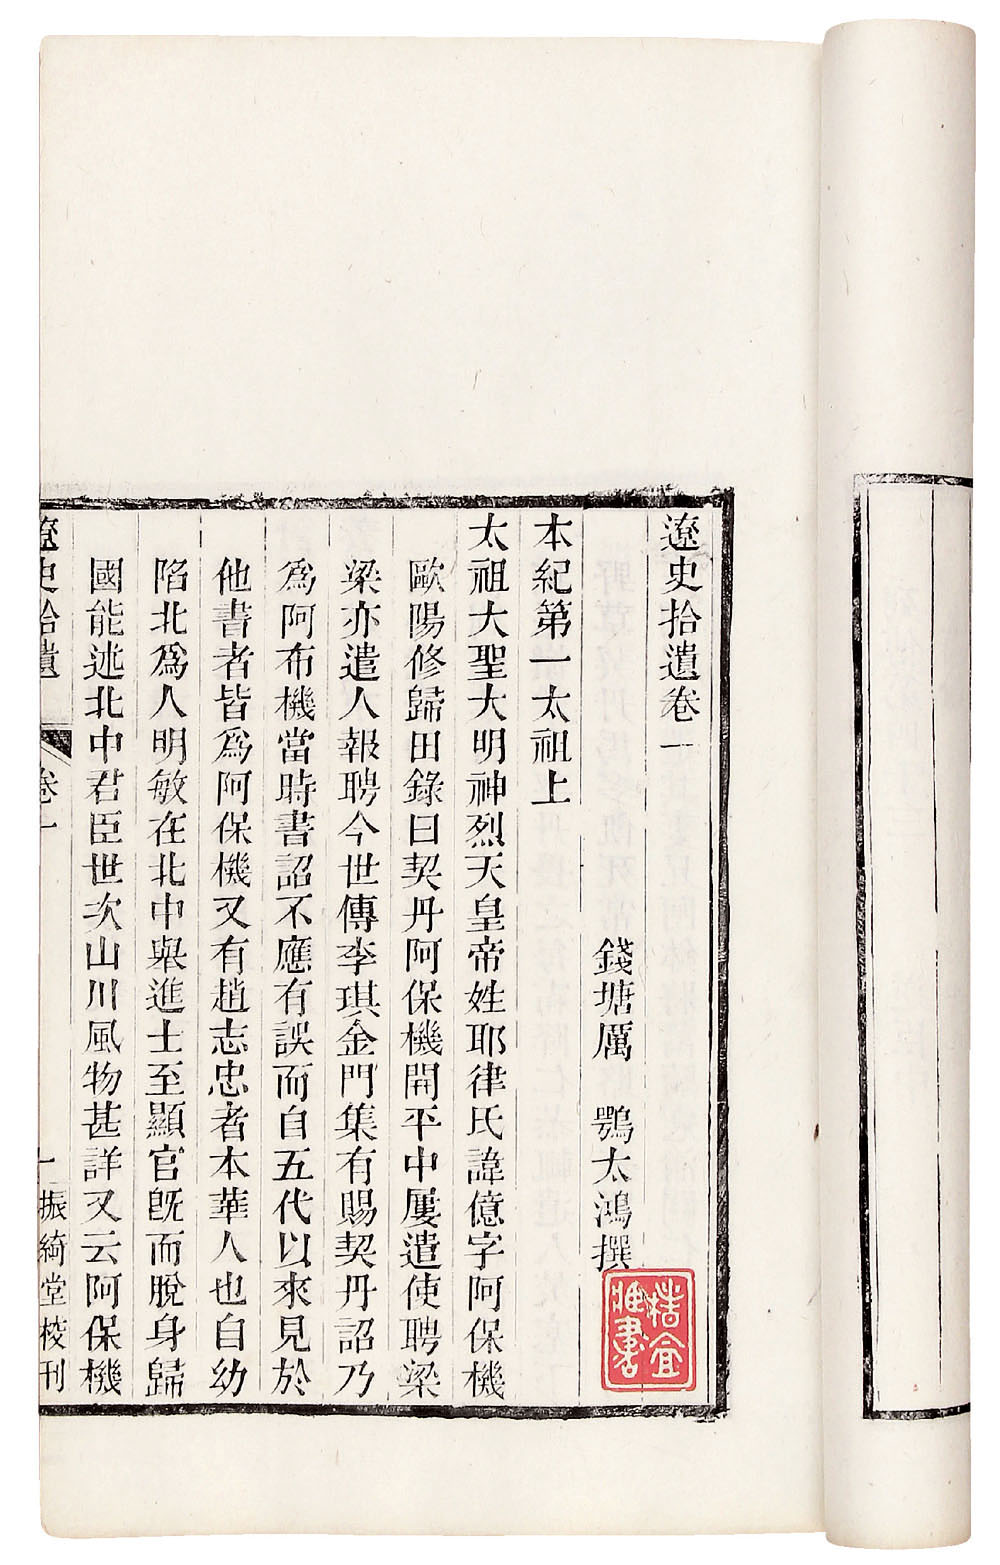 遼史拾遺卷一
錢塘厲　鶚太鴻撰
本紀第一太祖上
太祖大聖大明神烈天皇帝姓耶律氏諱億字阿保機
歐陽修歸田錄曰契丹阿保機開平中屢遣使聘梁
梁亦遣人報聘今世傳李琪金門集有賜契丹詔乃
爲阿布機當時書詔不應有誤而自五代以來見於
他書者皆爲阿保機又有趙志忠者本華人也自幼
陷北爲人明敏在北中舉進士至顯官旣而脫身歸
國能述北中君臣世次山川風物甚詳又云阿保機
遼史拾遺　卷一　一　振綺堂校刊